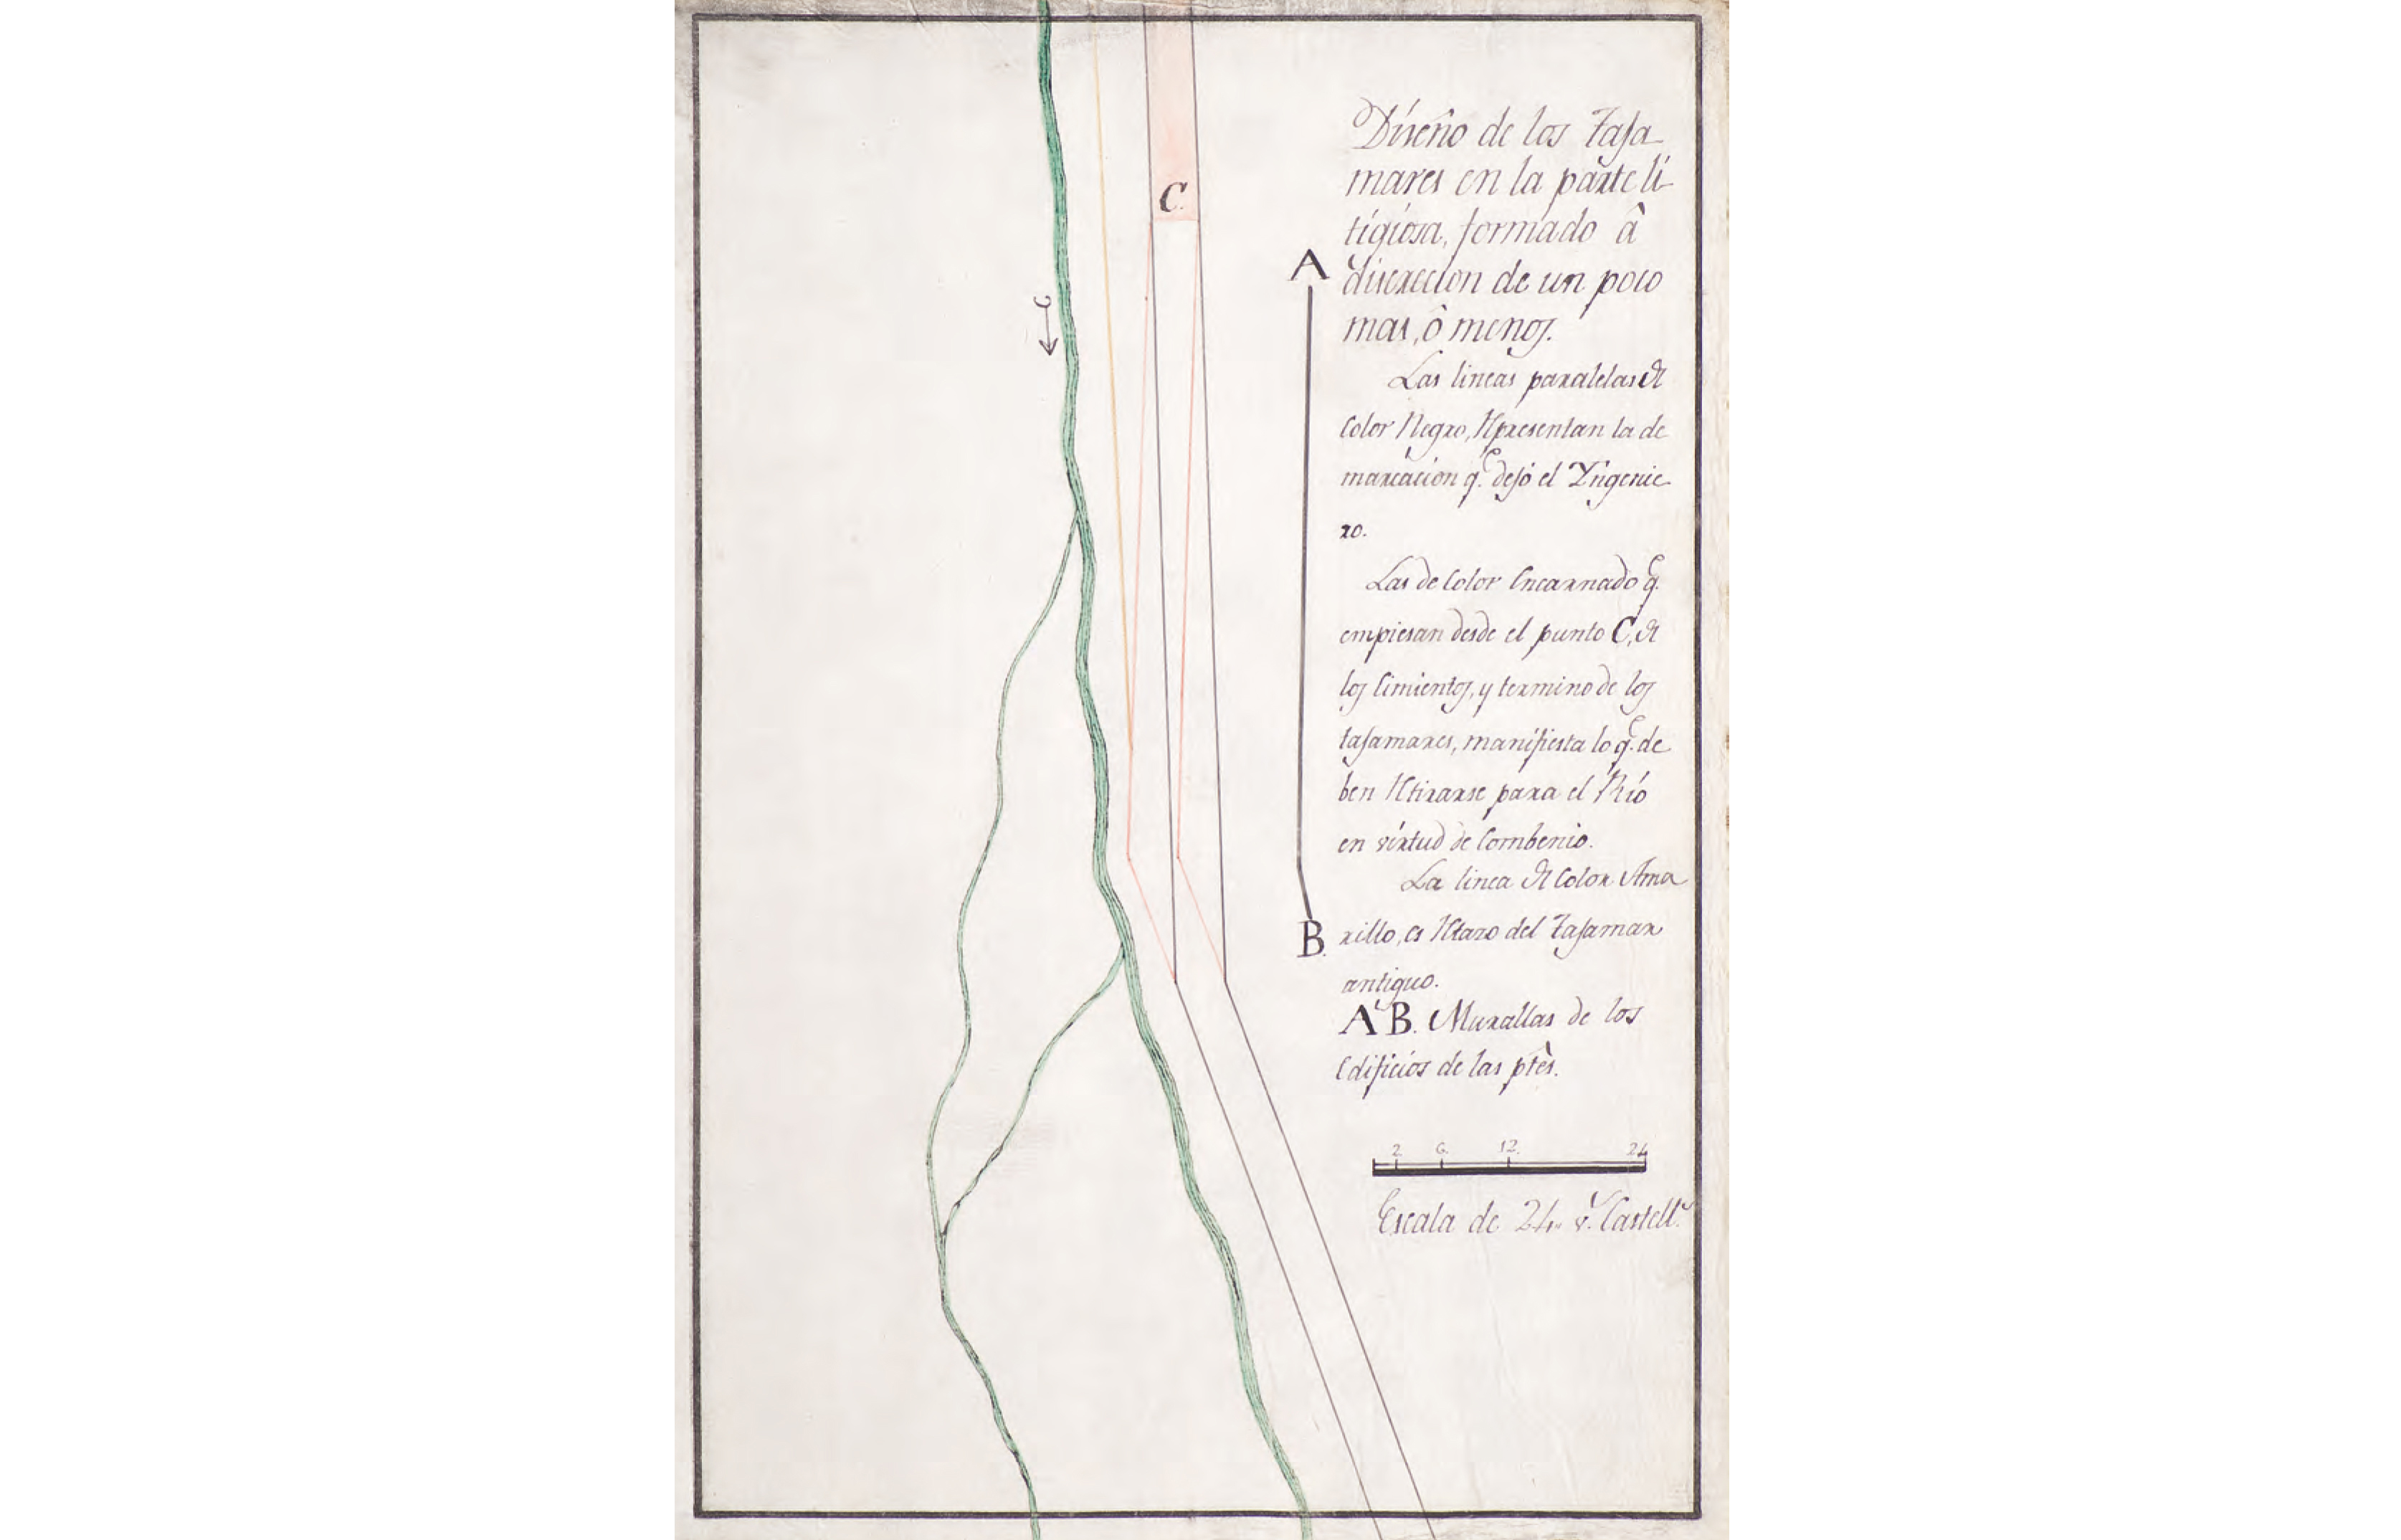 C.
A
B.
Diseño de los Taja
mares en la parte li
tigiosa, formado â
discrecion de un poco
mas, ô menos.
Las lineas paralelas de
Color Negro, Representan la de
marcacion q.e dejó el Yngenie
ro.
Las de Color Encarnado q.e
empiesan desde el punto C, de
los Cimientos, y termino de los
tajamares, manifiesta lo q.e de
ben Retirarse para el Río
en virtud de Combenio.
La linea de Color Ama
rillo, es Retazo del Tajamar
antiguo.
A B. Murallas de los
Edificios de las ptês.
2. 6. 12. 24
Escala de 24 v.s Castell.s